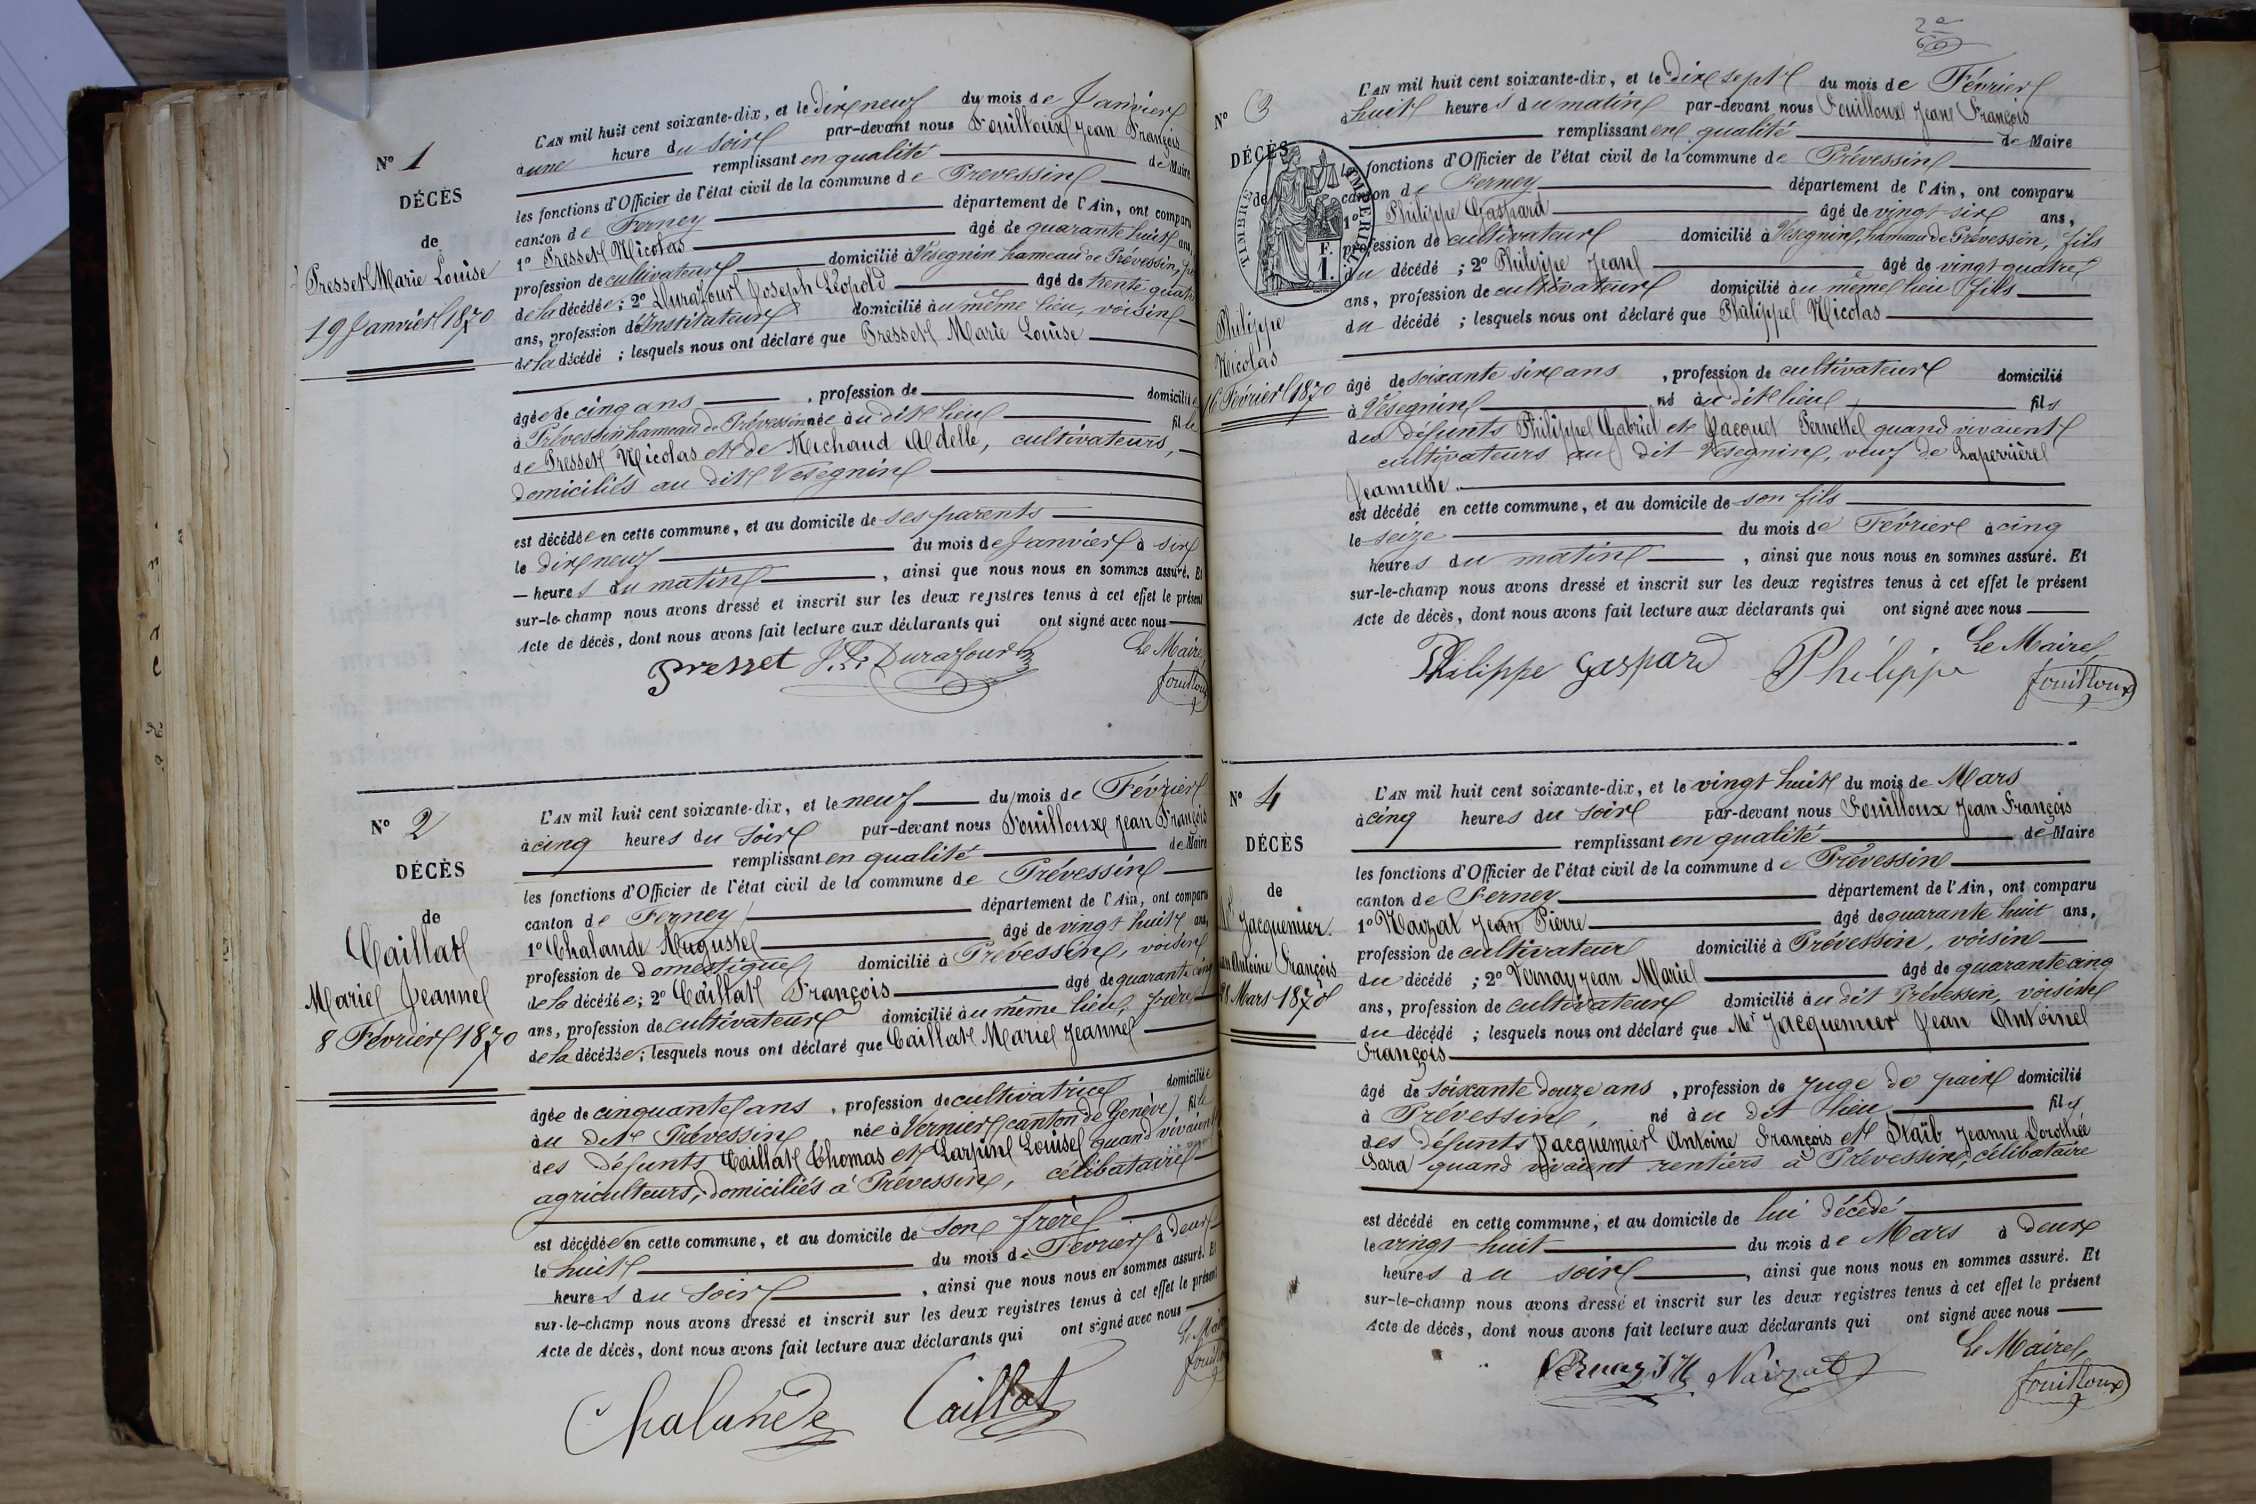 N° 1
DÉCÈS
de
Presset Marie Louise
19 Janvier 1870
L'AN mil huit cent soixante-dix, et le dix neuf du mois de Janvier
à une heure du soir par-devant nous Fouilloux Jean François
remplissant en qualité de Maire
les fonctions d'Officier de l'état civil de la commune de Prevessin
canton de Ferney département de l'Ain, ont comparu
1° Presset Nicolas âgé de quarante huit ans,
profession de cultivateur domicilié à Vésegnin hameau de Prévessin,
de la décédée ; 2° Durafour Joseph Léopold âgé de trente quatre
ans, profession d'Instituteur domicilié au même lieu, voisin
de la décédé ; lesquels nous ont déclaré que Presset Marie Louise
âgée de cinq ans , profession de domiciliée
à Prévessin hameau de Prévessin née au dit lieu fille
de Presset Nicolas et de Michaud Adelle, cultivateurs,
domiciliés au dit Vesegnin
est décédée en cette commune, et au domicile de ses parents
le dix neuf du mois de Janvier à six
heures du matin , ainsi que nous nous en sommes assuré. Et
sur-le-champ nous avons dressé et inscrit sur les deux registres tenus à cet effet le présent
Acte de décès, dont nous avons fait lecture aux déclarants qui ont signé avec nous
Le Maire
Presset J. L. Durafour
Fouilloux
N° 2
DÉCÈS
de
Caillat
Marie Jeanne
8 Février 1870
L'AN mil huit cent soixante-dix, et le neuf du mois de Février
à cinq heures du soir par-devant nous Fouilloux Jean François
remplissant en qualité de Maire
les fonctions d'Officier de l'état civil de la commune de Prévessin
canton de Ferney département de l'Ain, ont comparu
1° Chalande Auguste âgé de vingt huit ans,
profession de domestique domicilié à Prévessin, voisin
de la décédée ; 2° Caillat François âgé de quarante cinq
ans, profession de cultivateur domicilié au même lieu, frère
de la décédée ; lesquels nous ont déclaré que Caillat Marie Jeanne
âgée de cinquante ans , profession de cultivatrice domiciliée
au dit Prévessin née à Vernier (canton de Genève) fille
des défunts Caillat Thomas et Larpin Louise quand vivaient
agriculteurs, domiciliés à Prévessin, célibataire
est décédée en cette commune, et au domicile de son frère
le huit du mois de Février à deux
heures du soir , ainsi que nous nous en sommes assuré. Et
sur-le-champ nous avons dressé et inscrit sur les deux registres tenus à cet effet le présent
Acte de décès, dont nous avons fait lecture aux déclarants qui ont signé avec nous
Le Maire
Chalande Caillat
Fouilloux
N° 3
DÉCÈS
de
TIMBRE IMPÉRIAL
F.
1.
Philippe
Nicolas
16 Février 1870
L'AN mil huit cent soixante-dix, et le dix sept du mois de Février
à huit heures du matin par-devant nous Fouilloux Jean François
remplissant en qualité de Maire
les fonctions d'Officier de l'état civil de la commune de Prévessin
canton de Ferney département de l'Ain, ont comparu
1° Philippe Gaspard âgé de vingt six ans,
profession de cultivateur domicilié à Vésegnin, hameau de Prévessin, fils
du décédé ; 2° Philippe Jean âgé de vingt quatre
ans, profession de cultivateur domicilié au même lieu fils
du décédé ; lesquels nous ont déclaré que Philippe Nicolas
âgé de soixante six ans , profession de cultivateur domicilié
à Vésegnin né au dit lieu fils
des défunts Philippe Gabriel et Jacquet Pernette quand vivaient
cultivateurs au dit Vésegnin, veuf de Laperrière
Jeannette.
est décédé en cette commune, et au domicile de son fils
le seize du mois de Février à cinq
heures du matin , ainsi que nous nous en sommes assuré. Et
sur-le-champ nous avons dressé et inscrit sur les deux registres tenus à cet effet le présent
Acte de décès, dont nous avons fait lecture aux déclarants qui ont signé avec nous
Le Maire
Philippe Gaspard Philippe
Fouilloux
N° 4
DÉCÈS
de
Jacquemier.
Jean Antoine François
28 Mars 1870
L'AN mil huit cent soixante-dix, et le vingt huit du mois de Mars
à cinq heures du soir par-devant nous Fouilloux Jean François
remplissant en qualité de Maire
les fonctions d'Officier de l'état civil de la commune de Prévessin
canton de Ferney département de l'Ain, ont comparu
1° Naizat Jean Pierre âgé de quarante huit ans,
profession de cultivateur domicilié à Prévessin, voisin
du décédé ; 2° Vernay Jean Marie âgé de quarante cinq
ans, profession de cultivateur domicilié au dit Prévessin, voisin
du décédé ; lesquels nous ont déclaré que Mr Jacquemier Jean Antoine
François
âgé de soixante douze ans , profession de Juge de paix domicilié
à Prévessin, né au dit lieu fils
des défunts Jacquemier Antoine François et Staïb Jeanne Dorothée
Sara quand vivaient rentiers à Prévessin, célibataire
est décédé en cette commune, et au domicile de lui décédé
le vingt huit du mois de Mars à deux
heures du soir , ainsi que nous nous en sommes assuré. Et
sur-le-champ nous avons dressé et inscrit sur les deux registres tenus à cet effet le présent
Acte de décès, dont nous avons fait lecture aux déclarants qui ont signé avec nous
Le Maire
Vernay J M Naizat
Fouilloux